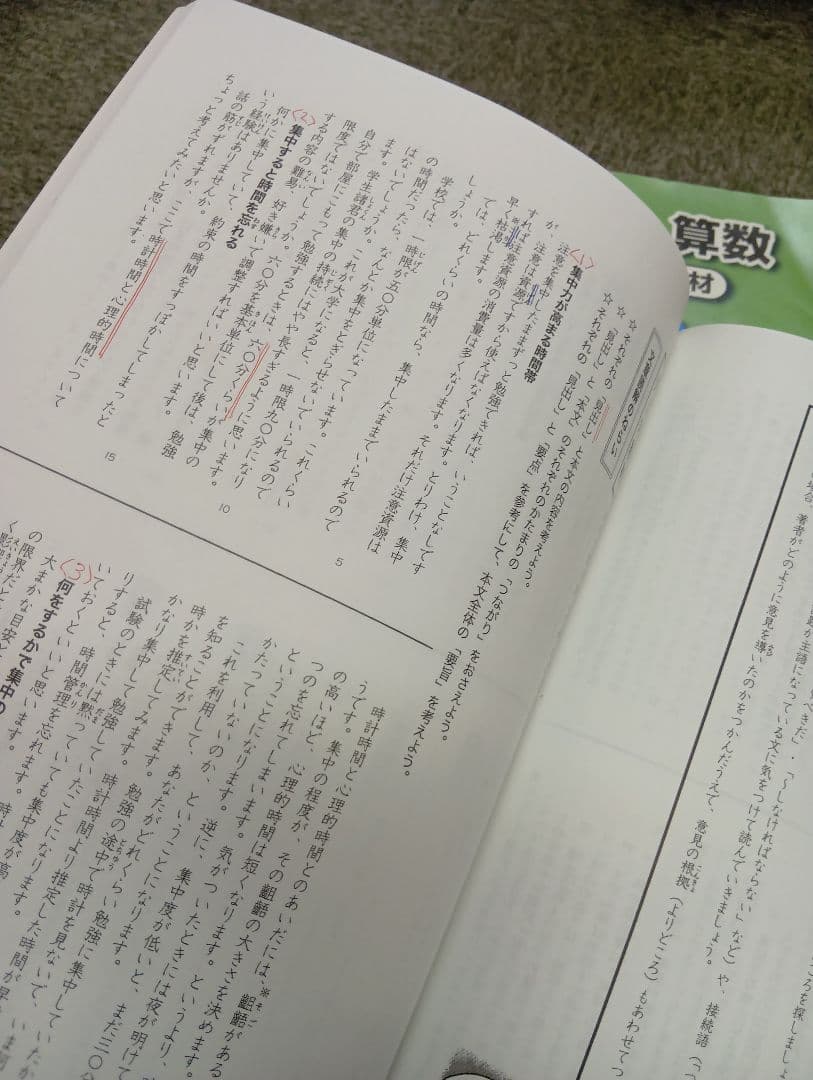 算数
材
の場合、著者がどのように意見を導いたのかをつかんだうえで、意見の根拠（よりどころ）もあわせてつ
が主語になっている文に気をつけて読んでいきましょう。
べきだ」・「～しなければならない」など）や、接続語（「つ
ころを探しましょ
☆それぞれの「見出し」と本文の内容を考えよう。
☆「見出し」と「本文」のそれぞれのかたまりの「つながり」をおさえよう。
☆それぞれの「見出し」と「要点」を参考にして、本文全体の「要旨」を考えよう。
(1)集中力が高まる時間帯
注意を集中したままずっと勉強できれば、いうことなしです
が、注意は資源ですから使えばなくなります。とりわけ、集中
すれば注意資源の消費量は多くなります。それだけ注意資源は
早く枯渇します。
では、どれくらいの時間なら、集中したままでいられるので
しょうか。
学校では、一時限が五〇分単位になっています。これくらい
の時間だったら、なんとか集中をとぎらせないでいられるので
はないでしょうか。これが大学になると、一時限九〇分になり
ます。学生諸君の集中の持続にはやや長すぎるように思います。
自分で部屋にこもって勉強するときは、六〇分くらいが集中の
限度ではないでしょうか。六〇分を基本単位にして後は、勉強
する内容の難易、好き嫌いで調整すればいいと思います。
(2)集中すると時間を忘れる
何かに集中していて、約束の時間をすっぽかしてしまったと
いう経験はありませんか。
話の筋がずれますが、ここで時計時間と心理的時間について
ちょっと考えてみたいと思います。
5
10
15
時計時間と心理的時間とのあいだには、※齟齬がある
うです。集中の程度が、その齟齬の大きさを決めます。
の高いほど、心理的時間は短くなります。というより、
つのを忘れてしまいます。気がついたときには夜が明けて
ということになります。逆に、集中度が低いと、まだ三〇分
かたっていないのか、ということになります。
これを利用して、あなたがどれくらい勉強に集中していたか
を知ることができます。勉強の途中で時計を見ないで、いま何
時かを推定
かなり集中してみます。時計時間より推定した時間が早
試験のときには
りすると、時間管理を忘れます。
いておくといいと思います。
(3)何をするかで集中の
大まかな目安
の限界だと